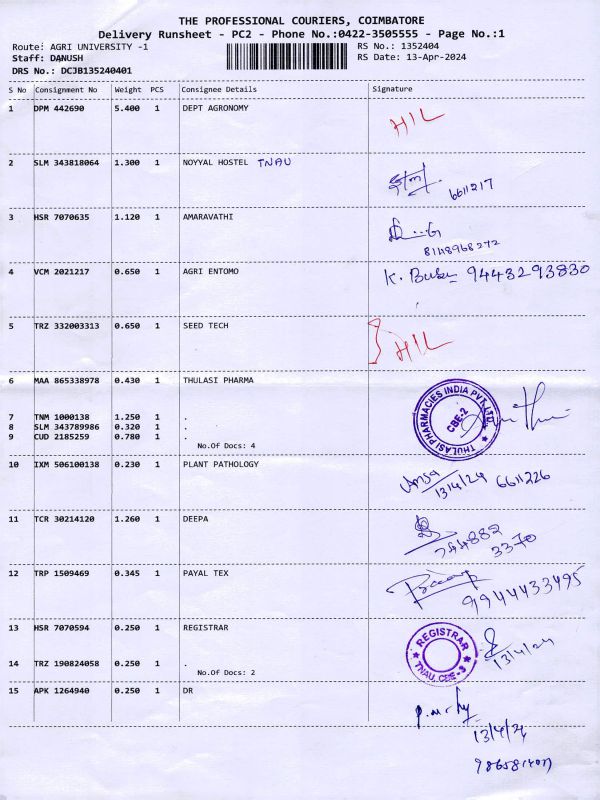 THE PROFESSIONAL COURIERS, COIMBATORE
Delivery Runsheet - PC2 - Phone No.:0422-3505555 - Page No.:1
Route: AGRI UNIVERSITY -1 RS No.: 1352404
Staff: DANUSH RS Date: 13-Apr-2024
DRS No.: DCJB135240401
S No Consignment No Weight PCS Consignee Details Signature
1 DPM 442690 5.400 1 DEPT AGRONOMY HIL
2 SLM 343818064 1.300 1 NOYYAL HOSTEL TNAU
6611217
3 HSR 7070635 1.120 1 AMARAVATHI
8148968272
4 VCM 2021217 0.650 1 AGRI ENTOMO K. Babu 9443293830
5 TRZ 332003313 0.650 1 SEED TECH HIL
6 MAA 865338978 0.430 1 THULASI PHARMA
THULASI PHARMACIES INDIA PVT. LTD.
CBE-2
7 TNM 1000138 1.250 1 .
8 SLM 343789986 0.320 1 .
9 CUD 2185259 0.780 1 .
No.Of Docs: 4
10 IXM 506100138 0.230 1 PLANT PATHOLOGY
13/4/24 6611226
11 TCR 30214120 1.260 1 DEEPA
744882
3370
12 TRP 1509469 0.345 1 PAYAL TEX
9944433495
13 HSR 7070594 0.250 1 REGISTRAR
REGISTRAR
TNAU, CBE-3
13/4/24
14 TRZ 190824058 0.250 1 .
No.Of Docs: 2
15 APK 1264940 0.250 1 DR
13/4/24